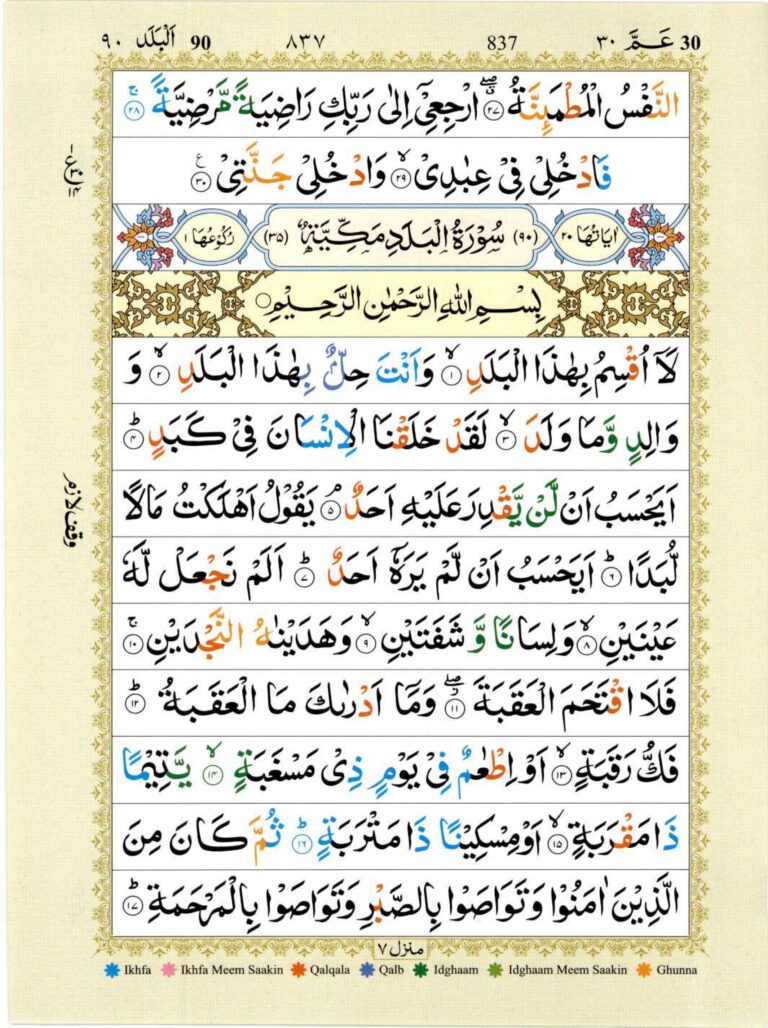 اَلْبَلَد ٩٠ 90 ٨٣٧ 837 عَـمَّ ٣٠ 30
النَّفْسُ الْمُطْمَىِٕنَّةُ ۝٢٧ ارْجِعِيْۤ اِلٰى رَبِّكِ رَاضِيَةً مَّرْضِيَّةً ۝٢٨
فَادْخُلِيْ فِيْ عِبٰدِيْ ۝٢٩ وَادْخُلِيْ جَنَّتِيْ ۝٣٠
اٰيَاتُهَا ٢٠ (٩٠) سُوْرَةُ الْبَلَدِ مَكِّيَّةٌ (٣٥) رُكُوْعُهَا ١
بِسْمِ اللّٰهِ الرَّحْمٰنِ الرَّحِيْمِ
لَاۤ اُقْسِمُ بِهٰذَا الْبَلَدِ ۝١ وَاَنْتَ حِلٌّۢ بِهٰذَا الْبَلَدِ ۝٢ وَ
وَالِدٍ وَّمَا وَلَدَ ۝٣ لَقَدْ خَلَقْنَا الْاِنْسَانَ فِيْ كَبَدٍ ۝٤
اَيَحْسَبُ اَنْ لَّنْ يَّقْدِرَ عَلَيْهِ اَحَدٌ ۝٥ يَقُوْلُ اَهْلَكْتُ مَالًا
لُّبَدًا ۝٦ اَيَحْسَبُ اَنْ لَّمْ يَرَهٗۤ اَحَدٌ ۝٧ اَلَمْ نَجْعَلْ لَّهٗ
عَيْنَيْنِ ۝٨ وَلِسَانًا وَّ شَفَتَيْنِ ۝٩ وَهَدَيْنٰهُ النَّجْدَيْنِ ۝١٠
فَلَا اقْتَحَمَ الْعَقَبَةَ ۝١١ وَمَاۤ اَدْرٰىكَ مَا الْعَقَبَةُ ۝١٢
فَكُّ رَقَبَةٍ ۝١٣ اَوْ اِطْعٰمٌ فِيْ يَوْمٍ ذِيْ مَسْغَبَةٍ ۝١٤ يَّتِيْمًا
ذَا مَقْرَبَةٍ ۝١٥ اَوْ مِسْكِيْنًا ذَا مَتْرَبَةٍ ۝١٦ ثُمَّ كَانَ مِنَ
الَّذِيْنَ اٰمَنُوْا وَتَوَاصَوْا بِالصَّبْرِ وَتَوَاصَوْا بِالْمَرْحَمَةِ ۝١٧
وقف لازم
منزل ٧
Ikhfa Ikhfa Meem Saakin Qalqala Qalb Idghaam Idghaam Meem Saakin Ghunna